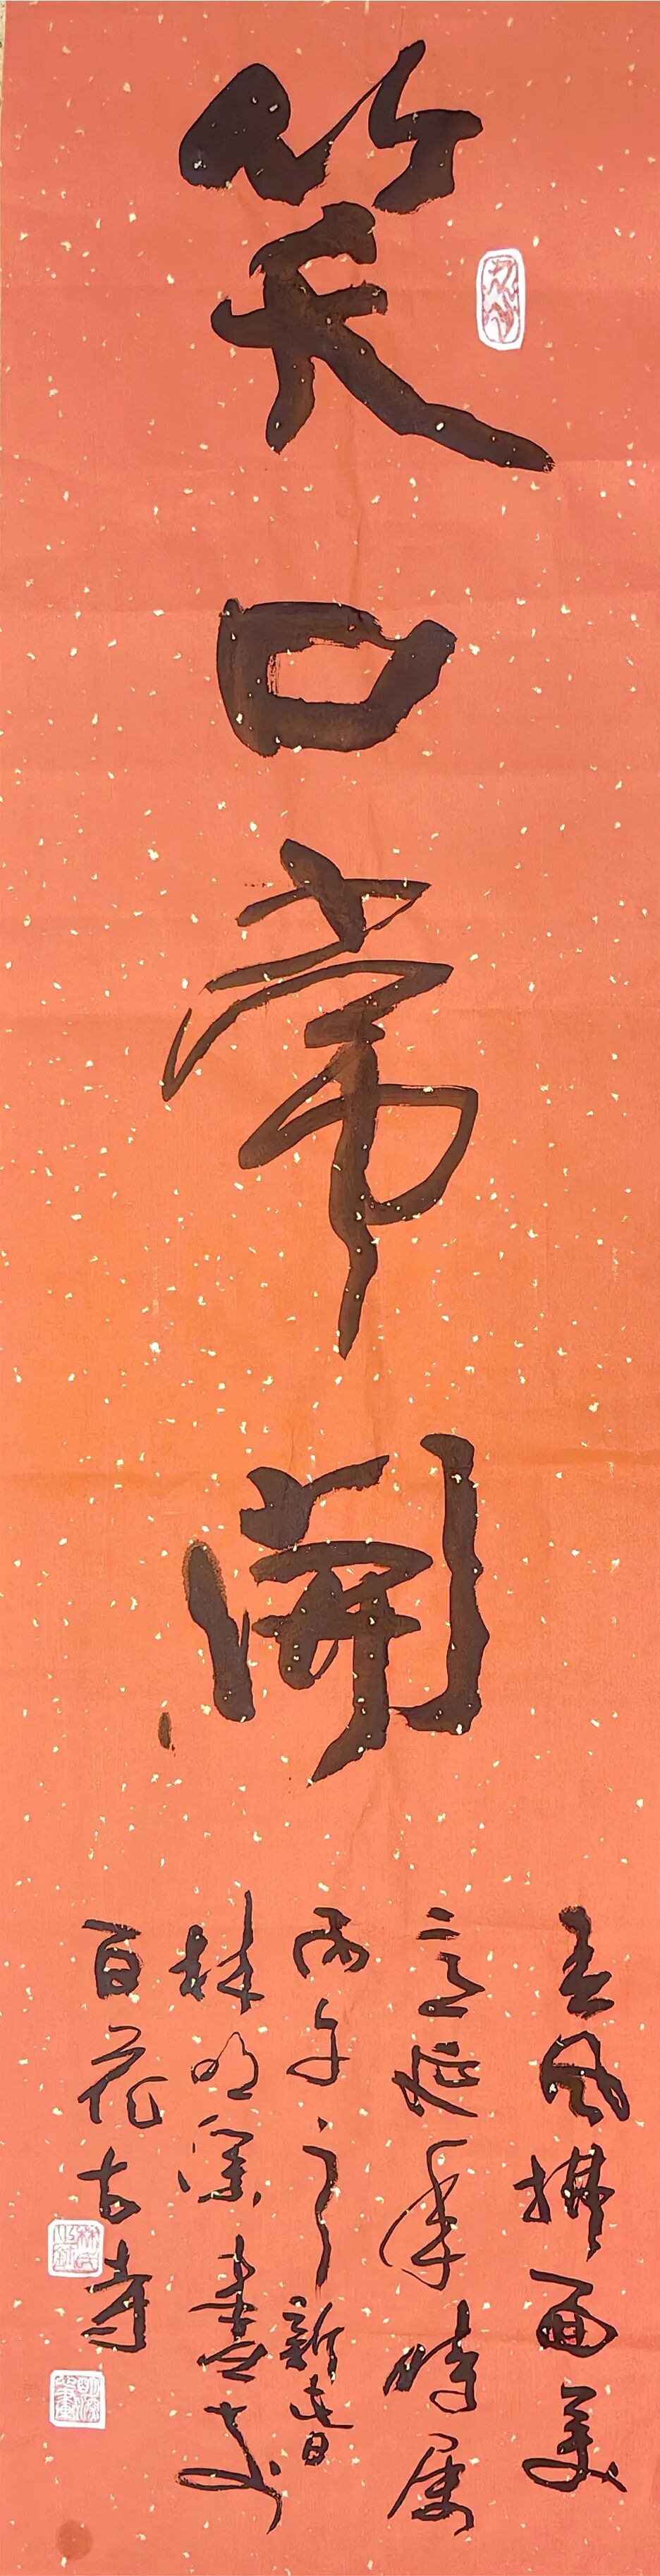 笑口常開
春風拂面美
意延年時屆
丙午之新春
林明深書於
百花古寺